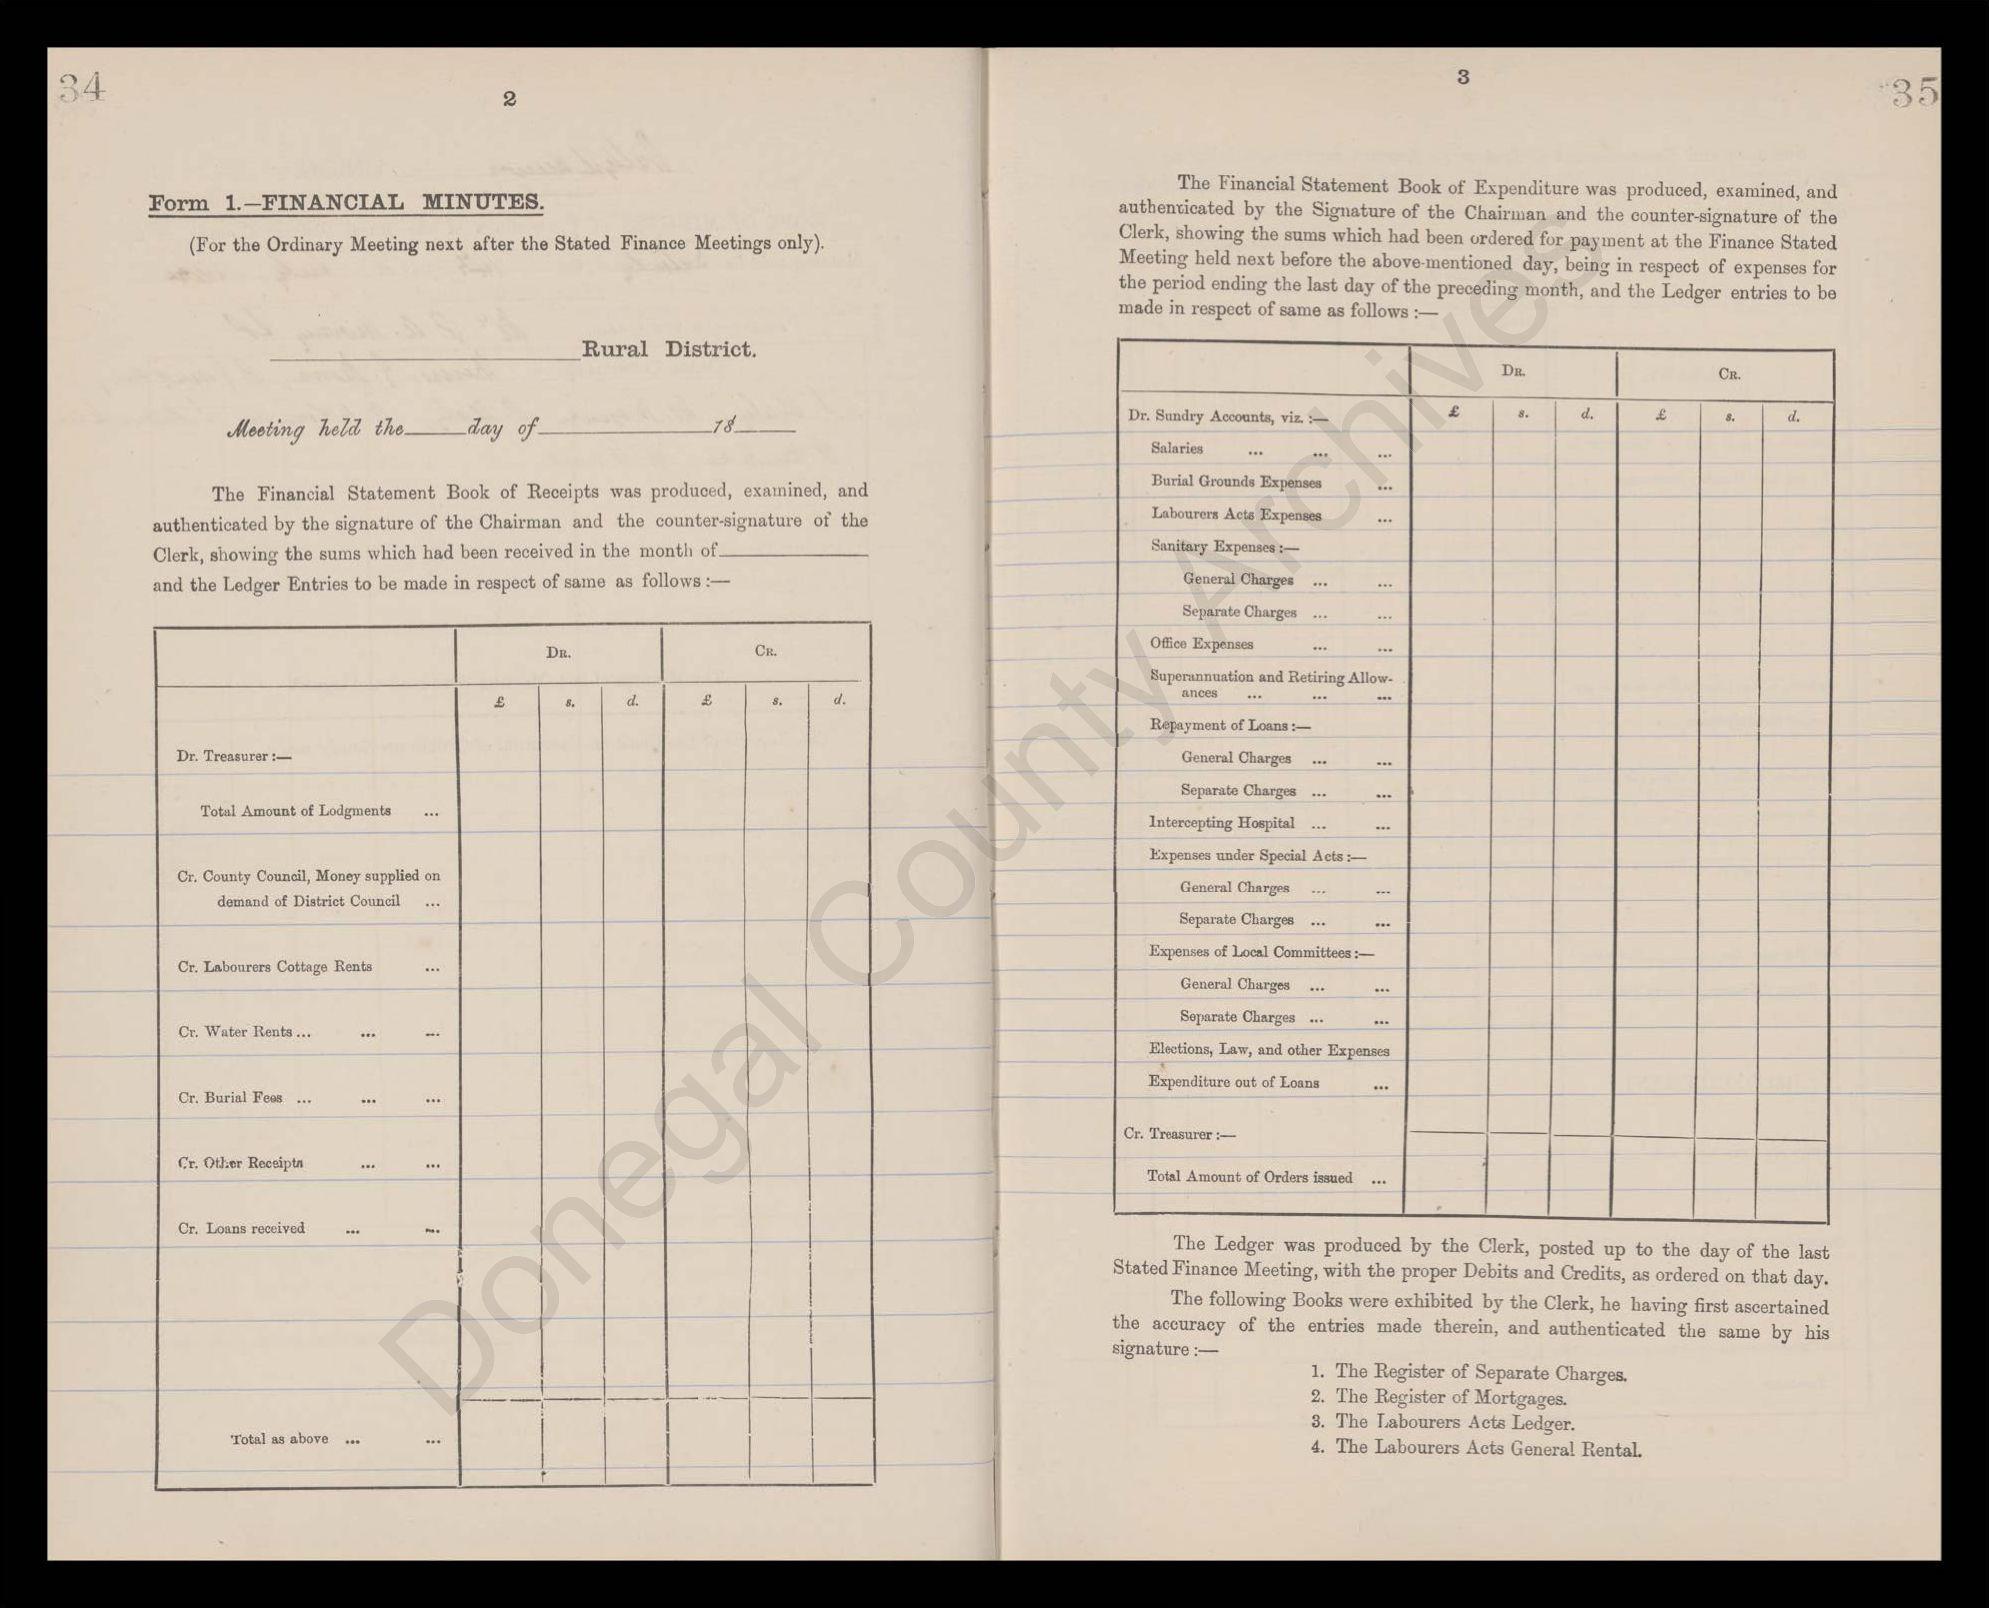 34
2
Form 1.—FINANCIAL MINUTES.
(For the Ordinary Meeting next after the Stated Finance Meetings only).
Rural District.
Meeting held the day of 18
The Financial Statement Book of Receipts was produced, examined, and
authenticated by the signature of the Chairman and the counter-signature of the
Clerk, showing the sums which had been received in the month of
and the Ledger Entries to be made in respect of same as follows :—
DR. CR.
£ s. d. £ s. d.
Dr. Treasurer :—
Total Amount of Lodgments ...
Cr. County Council, Money supplied on
demand of District Council ...
Cr. Labourers Cottage Rents ...
Cr. Water Rents ... ... ...
Cr. Burial Fees ... ... ...
Cr. Other Receipts ... ...
Cr. Loans received ... ...
Total as above ... ...
35
3
The Financial Statement Book of Expenditure was produced, examined, and
authenticated by the Signature of the Chairman and the counter-signature of the
Clerk, showing the sums which had been ordered for payment at the Finance Stated
Meeting held next before the above-mentioned day, being in respect of expenses for
the period ending the last day of the preceding month, and the Ledger entries to be
made in respect of same as follows :—
DR. CR.
£ s. d. £ s. d.
Dr. Sundry Accounts, viz. :—
Salaries ... ... ...
Burial Grounds Expenses ...
Labourers Acts Expenses ...
Sanitary Expenses :—
General Charges ... ...
Separate Charges ... ...
Office Expenses ... ...
Superannuation and Retiring Allow-
ances ... ... ...
Repayment of Loans :—
General Charges ... ...
Separate Charges ... ...
Intercepting Hospital ... ...
Expenses under Special Acts :—
General Charges ... ...
Separate Charges ... ...
Expenses of Local Committees :—
General Charges ... ...
Separate Charges ... ...
Elections, Law, and other Expenses
Expenditure out of Loans ...
Cr. Treasurer :—
Total Amount of Orders issued ...
The Ledger was produced by the Clerk, posted up to the day of the last
Stated Finance Meeting, with the proper Debits and Credits, as ordered on that day.
The following Books were exhibited by the Clerk, he having first ascertained
the accuracy of the entries made therein, and authenticated the same by his
signature :—
1. The Register of Separate Charges.
2. The Register of Mortgages.
3. The Labourers Acts Ledger.
4. The Labourers Acts General Rental.
Donegal County Archives